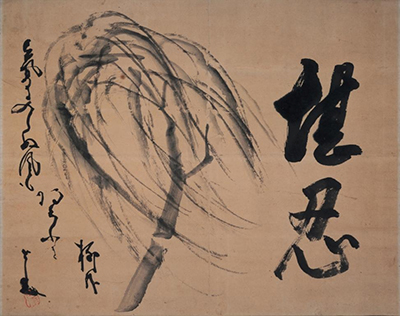 堪忍
氣に入らぬ風も
あろふに
柳哉